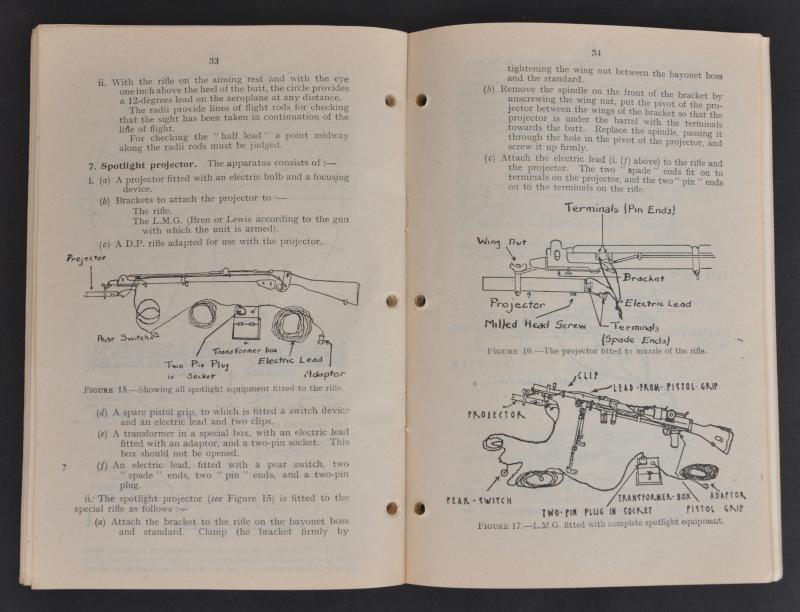 33
ii. With the rifle on the aiming rest and with the eye
one inch above the heel of the butt, the circle provides
a 12-degrees lead on the aeroplane at any distance.
The radii provide lines of flight rods for checking
that the sight has been taken in continuation of the
line of flight.
For checking the "half lead" a point midway
along the radii rods must be judged.
7. Spotlight projector. The apparatus consists of :—
i. (a) A projector fitted with an electric bulb and a focusing
device.
(b) Brackets to attach the projector to :—
The rifle.
The L.M.G. (Bren or Lewis according to the gun
with which the unit is armed).
(c) A D.P. rifle adapted for use with the projector.
Projector
Pear Switch
Two Pin Plug
in Socket
Transformer box
Electric Lead
Adaptor
FIGURE 15.—Showing all spotlight equipment fitted to the rifle.
(d) A spare pistol grip, to which is fitted a switch device
and an electric lead and two clips.
(e) A transformer in a special box, with an electric lead
fitted with an adaptor, and a two-pin socket. This
box should not be opened.
(f) An electric lead, fitted with a pear switch, two
"spade" ends, two "pin" ends, and a two-pin
plug.
ii. The spotlight projector (see Figure 15) is fitted to the
special rifle as follows :—
(a) Attach the bracket to the rifle on the bayonet boss
and standard. Clamp the bracket firmly by
34
tightening the wing nut between the bayonet boss
and the standard.
(b) Remove the spindle on the front of the bracket by
unscrewing the wing nut, put the pivot of the pro-
jector between the wings of the bracket so that the
projector is under the barrel with the terminals
towards the butt. Replace the spindle, passing it
through the hole in the pivot of the projector, and
screw it up firmly.
(c) Attach the electric lead (i, (f) above) to the rifle and
the projector. The two "spade" ends fit on to
terminals on the projector, and the two "pin" ends
on to the terminals on the rifle.
Terminals (Pin Ends)
Wing Nut
Bracket
Projector
Electric Lead
Milled Head Screw
Terminals
(Spade Ends)
FIGURE 16.—The projector fitted to muzzle of the rifle.
CLIP
LEAD·FROM·PISTOL·GRIP
PROJECTOR
PEAR·SWITCH
TRANSFORMER·BOX
ADAPTOR
TWO·PIN PLUG IN SOCKET
PISTOL GRIP
FIGURE 17.—L.M.G. fitted with complete spotlight equipment.